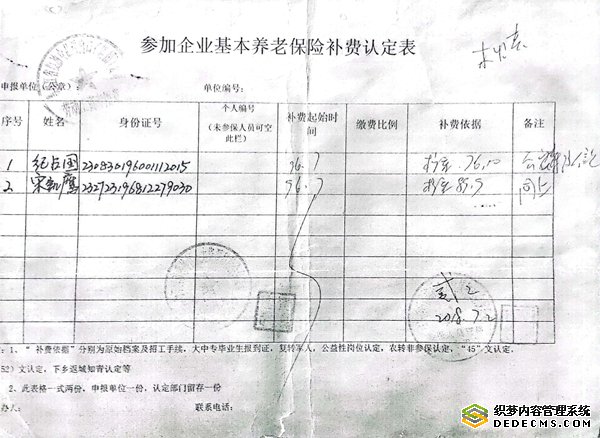 参加企业基本养老保险补费认定表
申报单位（公章）： 单位编号：
序号 姓名 身份证号 个人编号（未参保人员可空此栏） 补费起始时间 缴费比例 补费依据 备注
1 纪占国 230830196001112015 96.7 76.10
2 232723196812279030 96.7 85.9 同上
2018.7.2
：1、“补费依据”分别为原始档案及招工手续，大中专毕业生报到证，复转军人，公益性岗位认定，农转非参保认定，“45”文认定，
52）文认定，下乡返城知青认定等
2、此表格一式两份，申报单位一份，认定部门留存一份
办人： 联系电话：
织梦内容管理系统
DEDECMS.COM